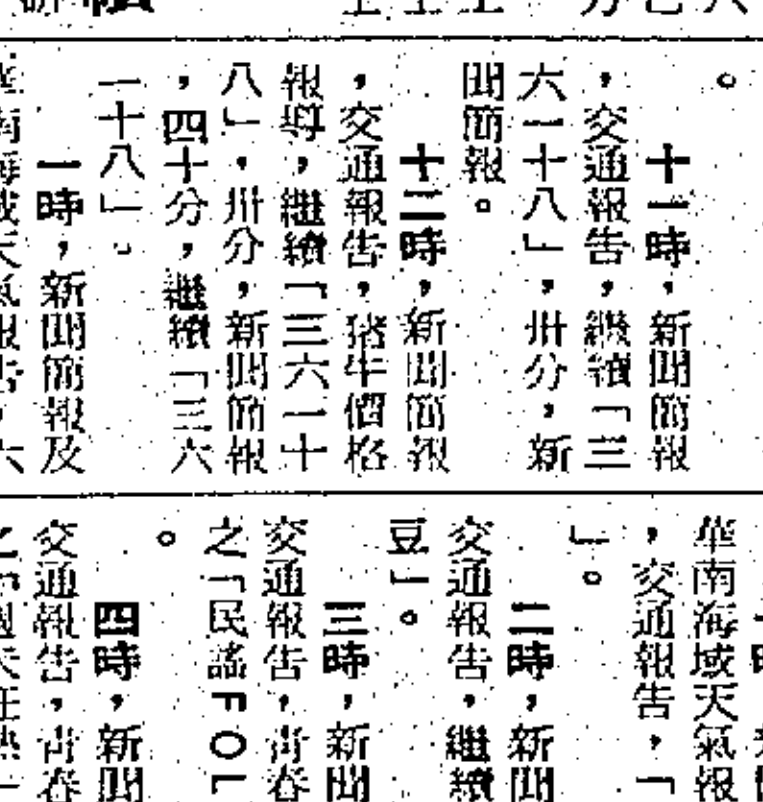 。
十一時，新聞簡報
，交通報告，繼續「三
六一十八」，卅分，新
聞簡報。
十二時，新聞簡報
，交通報告，豬牛價格
報導，繼續「三六一十
八」，卅分，新聞簡報
，四十分，繼續「三六
一十八」。
一時，新聞簡報及
華南海域天氣報告，六
華南海域天氣報
，交通報告，「
」。
二時，新聞
交通報告，繼續
豆」。
三時，新聞
交通報告，青春
之「民謠FOL
。
四時，新聞
交通報告，青春